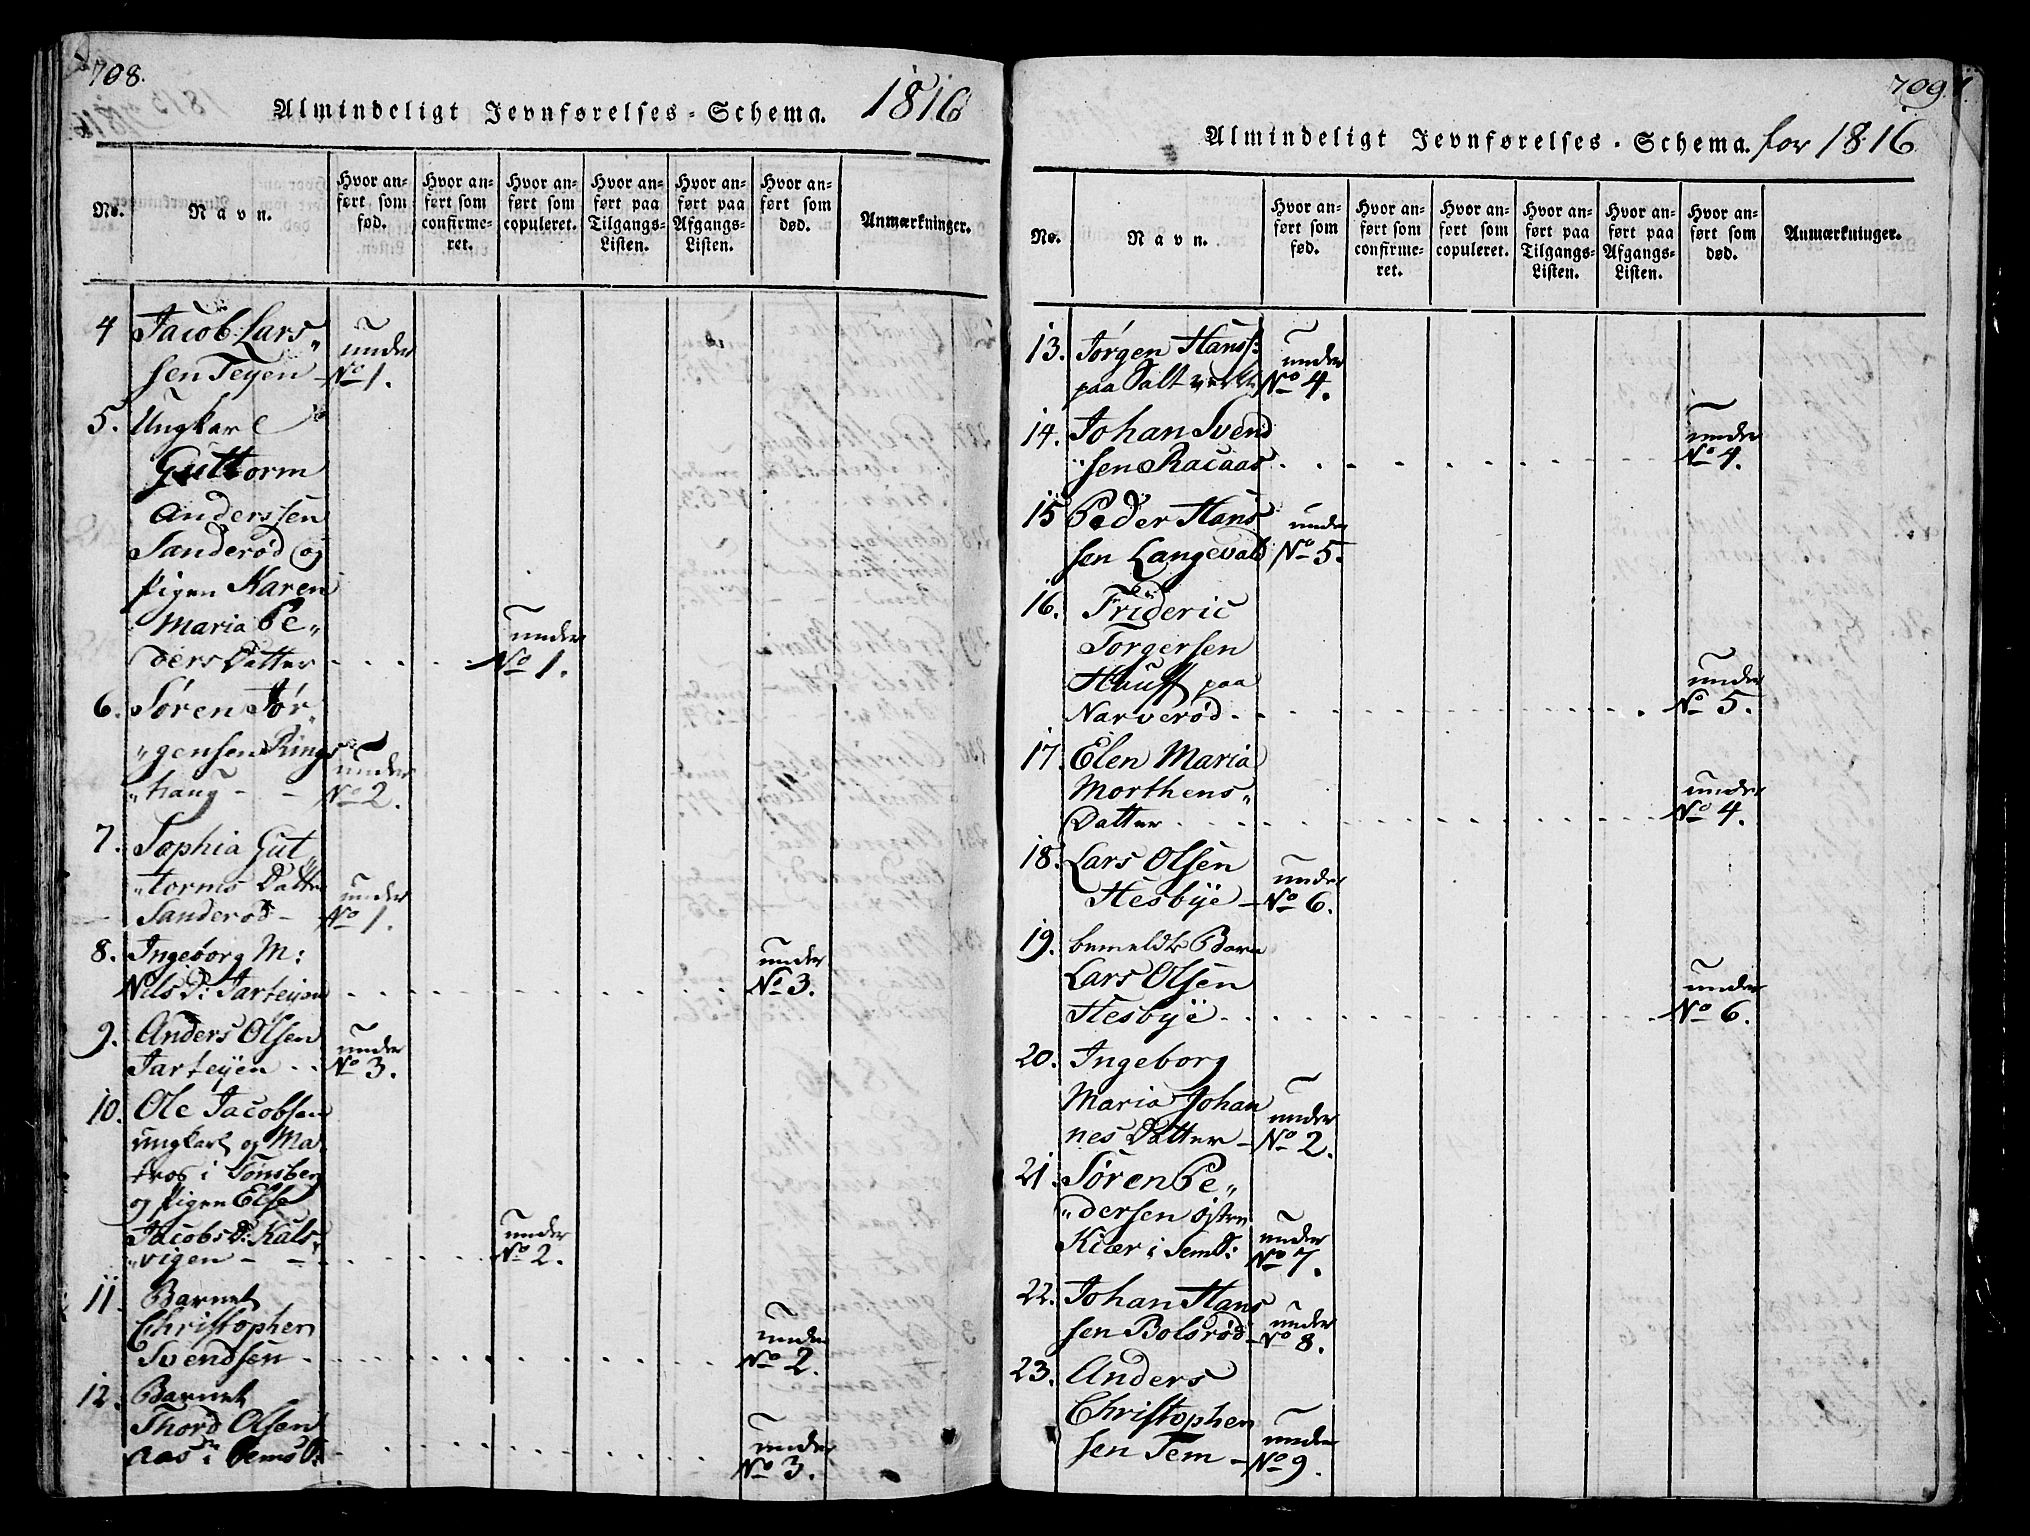 708.
Almindeligt Jevnførelses-Schema. 1816
No.
Navn.
Hvor an-
ført som
fød.
Hvor an-
ført som
confirme-
ret.
Hvor an-
ført som
copuleret.
Hvor an-
ført paa
Tilgangs-
Listen.
Hvor an-
ført paa
Afgangs-
Listen.
Hvor an-
ført som
død.
Anmærkninger.
4 Jacob Lars„ under
sen Teÿen - No 1.
5. Ungkarl
Guttorm
Anderssen
Sanderød og
Pigen Karen
Maria Pe„ under
ders Datter . . . . . No 1.
6. Søren Jør„
„gensen Rings„ under
„haug - - No 2.
7. Sophia Gut„
„torms Datter under
Sanderød - No 1.
8. Ingeborg M: under
Nils D: Jarteÿen . . . . . . . . No 3.
9. Anders Olsen under
Jarteÿen . . No 3.
10. Ole Jacobsen
ungkarl og Ma„
tros i Tønsberg
og Pigen Else
Jacobs D: Kals„ under
„vigen - - . . . . No 2.
11. Barnet
Christopher under
Svendsen . . . . . . . . . No 2.
12. Barnet
Thord Olsen under
Aas i Sems S: . . . . . . . . No 3.
709.
Almindeligt Jevnførelses-Schema. for 1816
No.
Navn.
Hvor an-
ført som
fød.
Hvor an-
ført som
confirme-
ret.
Hvor an-
ført som
copuleret.
Hvor an-
ført paa
Tilgangs-
Listen.
Hvor an-
ført paa
Afgangs-
Listen.
Hvor an-
ført som
død.
Anmærkninger.
13. Jørgen Hanss: under
paa Saltverket No 4.
14. Johan Svend under
„sen Racaas . . . . . . . . . No 4.
15 Peder Hans under
sen Langevald No 5.
16. Frideric
Torgersen
Hauff paa under
Narverød . . . . . . . . . . No 5.
17. Elen Maria
Morthens„ under
Datter . . . . . . . . . . . No 4.
18. Lars Olsen under
Hesbÿe - No 6.
19. bemeldte Barn
Lars Olsen under
Hesbÿe . . . . . . . . . . No 6.
20. Ingeborg
Maria Johan under
nes Datter - No 2.
21. Søren Pe„
„dersen
Kiær i Sem S: under No 7.
22. Johan Hans under
sen Bolsrød - No 8.
23. Anders
Christopher under
sen Sem - No 9.